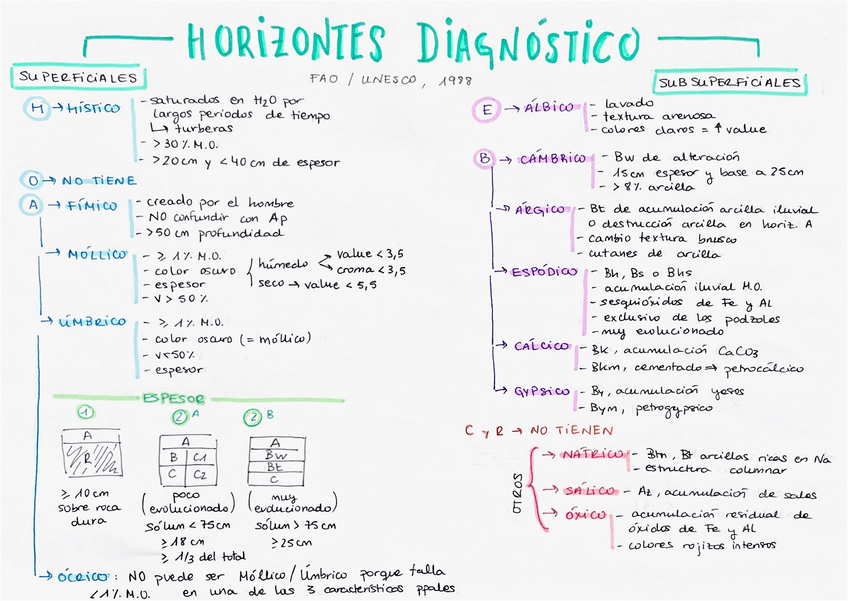 HORIZONTES DIAGNÓSTICO
FAO / UNESCO, 1988
SUPERFICIALES
H → HÍSTICO
- saturados en H2O por
largos periodos de tiempo
↳ turberas
- > 30% M.O.
- > 20 cm y < 40 cm de espesor
O → NO TIENE
A → FÍMICO
- creado por el hombre
- NO confundir con Ap
- > 50 cm profundidad
→ MÓLLICO
- ≥ 1% M.O.
- color oscuro
húmedo → value < 3,5
→ croma < 3,5
seco → value < 5,5
- espesor
- V > 50%
→ ÚMBRICO
- ≥ 1% M.O.
- color oscuro (= móllico)
- V<50%
- espesor
ESPESOR
1
A
R
≥ 10 cm
sobre roca
dura
2 A
A
B C1
C C2
(poco
evolucionado)
sólum < 75 cm
≥ 18 cm
≥ 1/3 del total
2 B
A
Bw
Bt
C
(muy
evolucionado)
sólum > 75 cm
≥ 25 cm
→ ÓCRICO: NO puede ser Móllico / Úmbrico porque falla
<1% M.O. en una de las 3 características ppales
SUBSUPERFICIALES
E → ÁLBICO
- lavado
- textura arenosa
- colores claros = ↑ value
B → CÁMBRICO
- Bw de alteración
- 15 cm espesor y base a 25 cm
- > 8% arcilla
→ ÁRGICO
- Bt de acumulación arcilla iluvial
o destrucción arcilla en horiz. A
- cambio textura brusco
- cutanes de arcilla
→ ESPÓDICO
- Bh, Bs o Bhs
- acumulación iluvial M.O.
- sesquióxidos de Fe y Al
- exclusivo de los podzoles
- muy evolucionado
→ CÁLCICO
- Bk, acumulación CaCO3
- Bkm, cementado ⇒ petrocálcico
→ GYPSICO
- By, acumulación yesos
- Bym, petrogypsico
C y R → NO TIENEN
OTROS
→ NATRICO
- Btn, Bt arcillas ricas en Na
- estructura columnar
→ SÁLICO - Az, acumulación de sales
→ ÓXICO
- acumulación residual de
óxidos de Fe y Al
- colores rojizos intensos